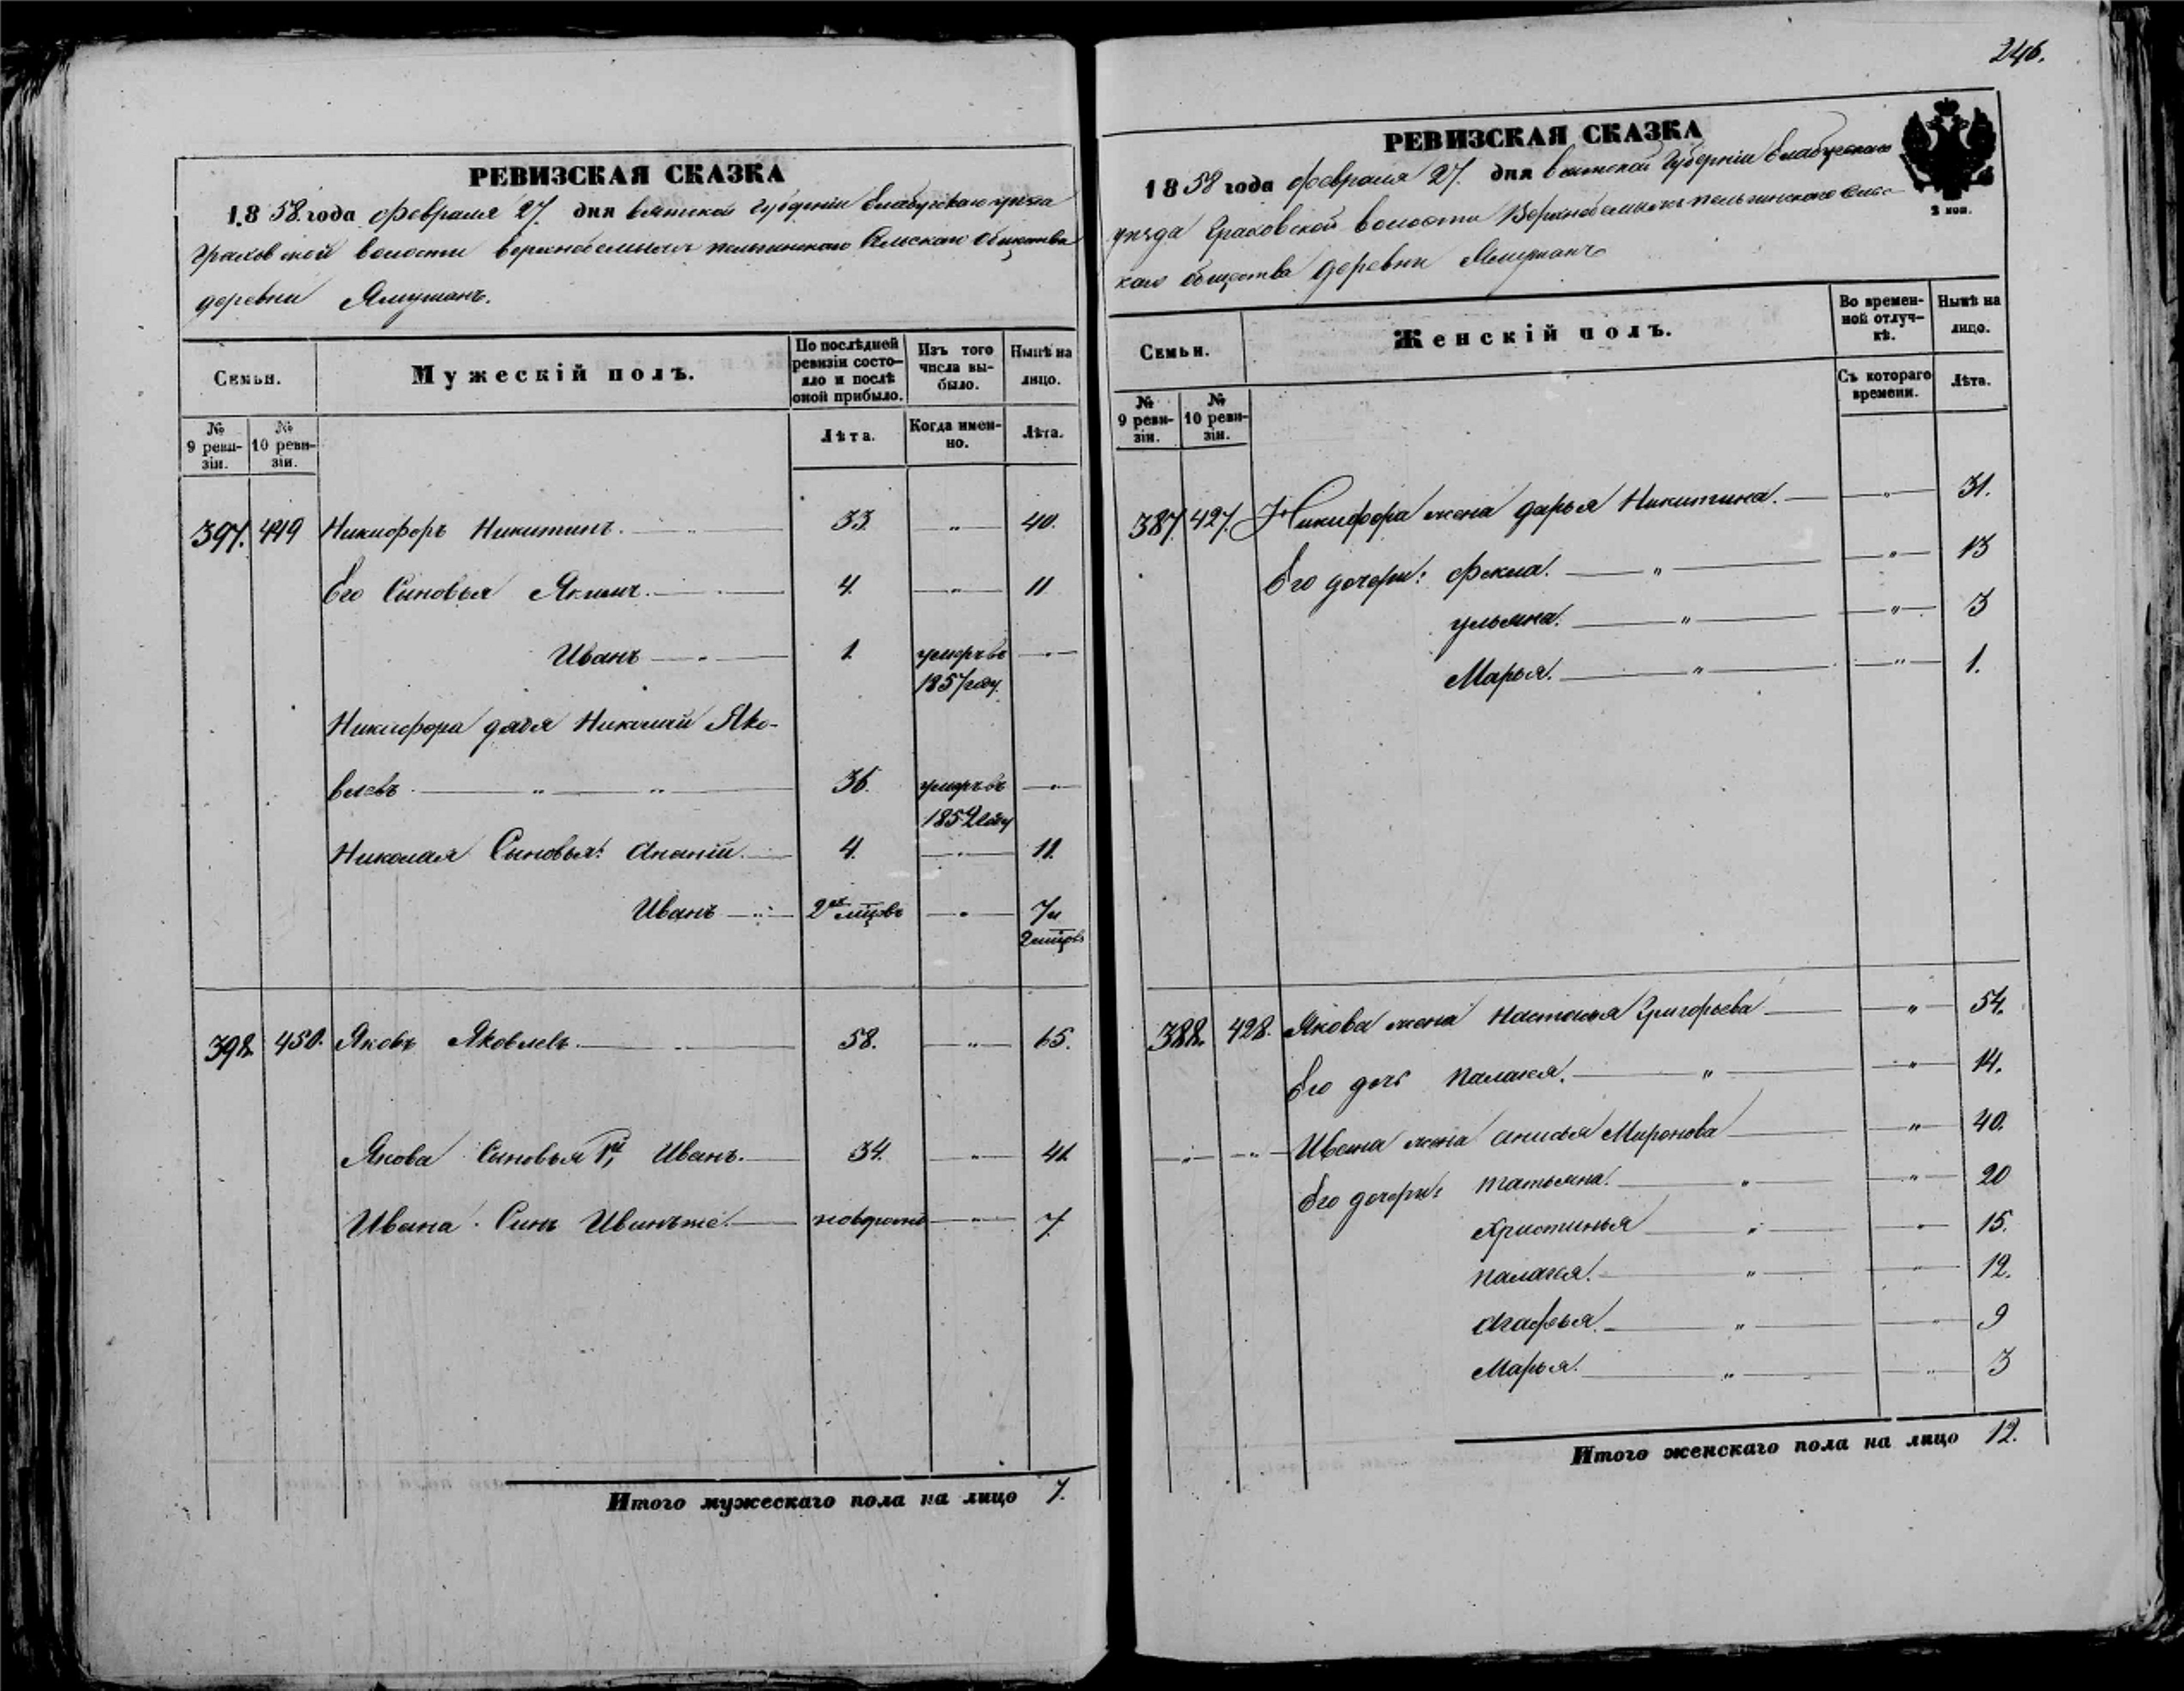 РЕВИЗСКАЯ СКАЗКА
1858. года февраля 27. дня вятской губерніи Елабугскаго уѣзда
Граховской волости сельскаго общества
деревни Ямушанъ.
Семьи.
Мужескій полъ.
По послѣдней ревизіи состояло и послѣ оной прибыло.
Изъ того числа выбыло.
Нынѣ на лицо.
№ 9 ревизіи.
№ 10 ревизіи.
Лѣта.
Когда именно.
Лѣта.
397. 449 Никифоръ Никитинъ. 33. " 40.
Его Сыновья Якимъ. 4. " 11
Иванъ 1. умеръ въ "
1857 году.
Никифора дядя Николай Яко-
влевъ " " 36. умеръ въ "
1852 году
Николая Сыновья: Ананій. 4. " 11.
Иванъ 2хъ мцовъ " 7 и
2 мцовъ
398. 450. Яковъ Яковлевъ. " 58. " 65.
Якова Сыновья 1й Иванъ. 34. " 41.
Ивана Сынъ Иванъ же. новорожд " 7.
Итого мужескаго пола на лицо 7.
246.
РЕВИЗСКАЯ СКАЗКА
1858 года февраля 27. дня вятской Губерніи Елабугскаго
2 коп.
уѣзда Граховской волости сель-
скаго общества деревни Ямушанъ
Семьи.
Женскій полъ.
Во временной отлучкѣ.
Нынѣ на лицо.
Съ котораго времени.
Лѣта.
№ 9 ревизіи.
№ 10 ревизіи.
387. 427. Никифора жена дарья Никитина. " 31.
Его дочери: фекла. " " 13
ульяна. " " 3
Марья. " " 1.
388. 428. Якова жена настасья Григорьева " 54.
Его дочь палагея. " " 14.
" " Ивана жена анисья Миронова " 40.
Его дочери: татьяна. " " 20
Христинья " " 15.
палагея. " " 12.
Агафья. " " 9
Марья. " " 3
Итого женскаго пола на лицо 12.